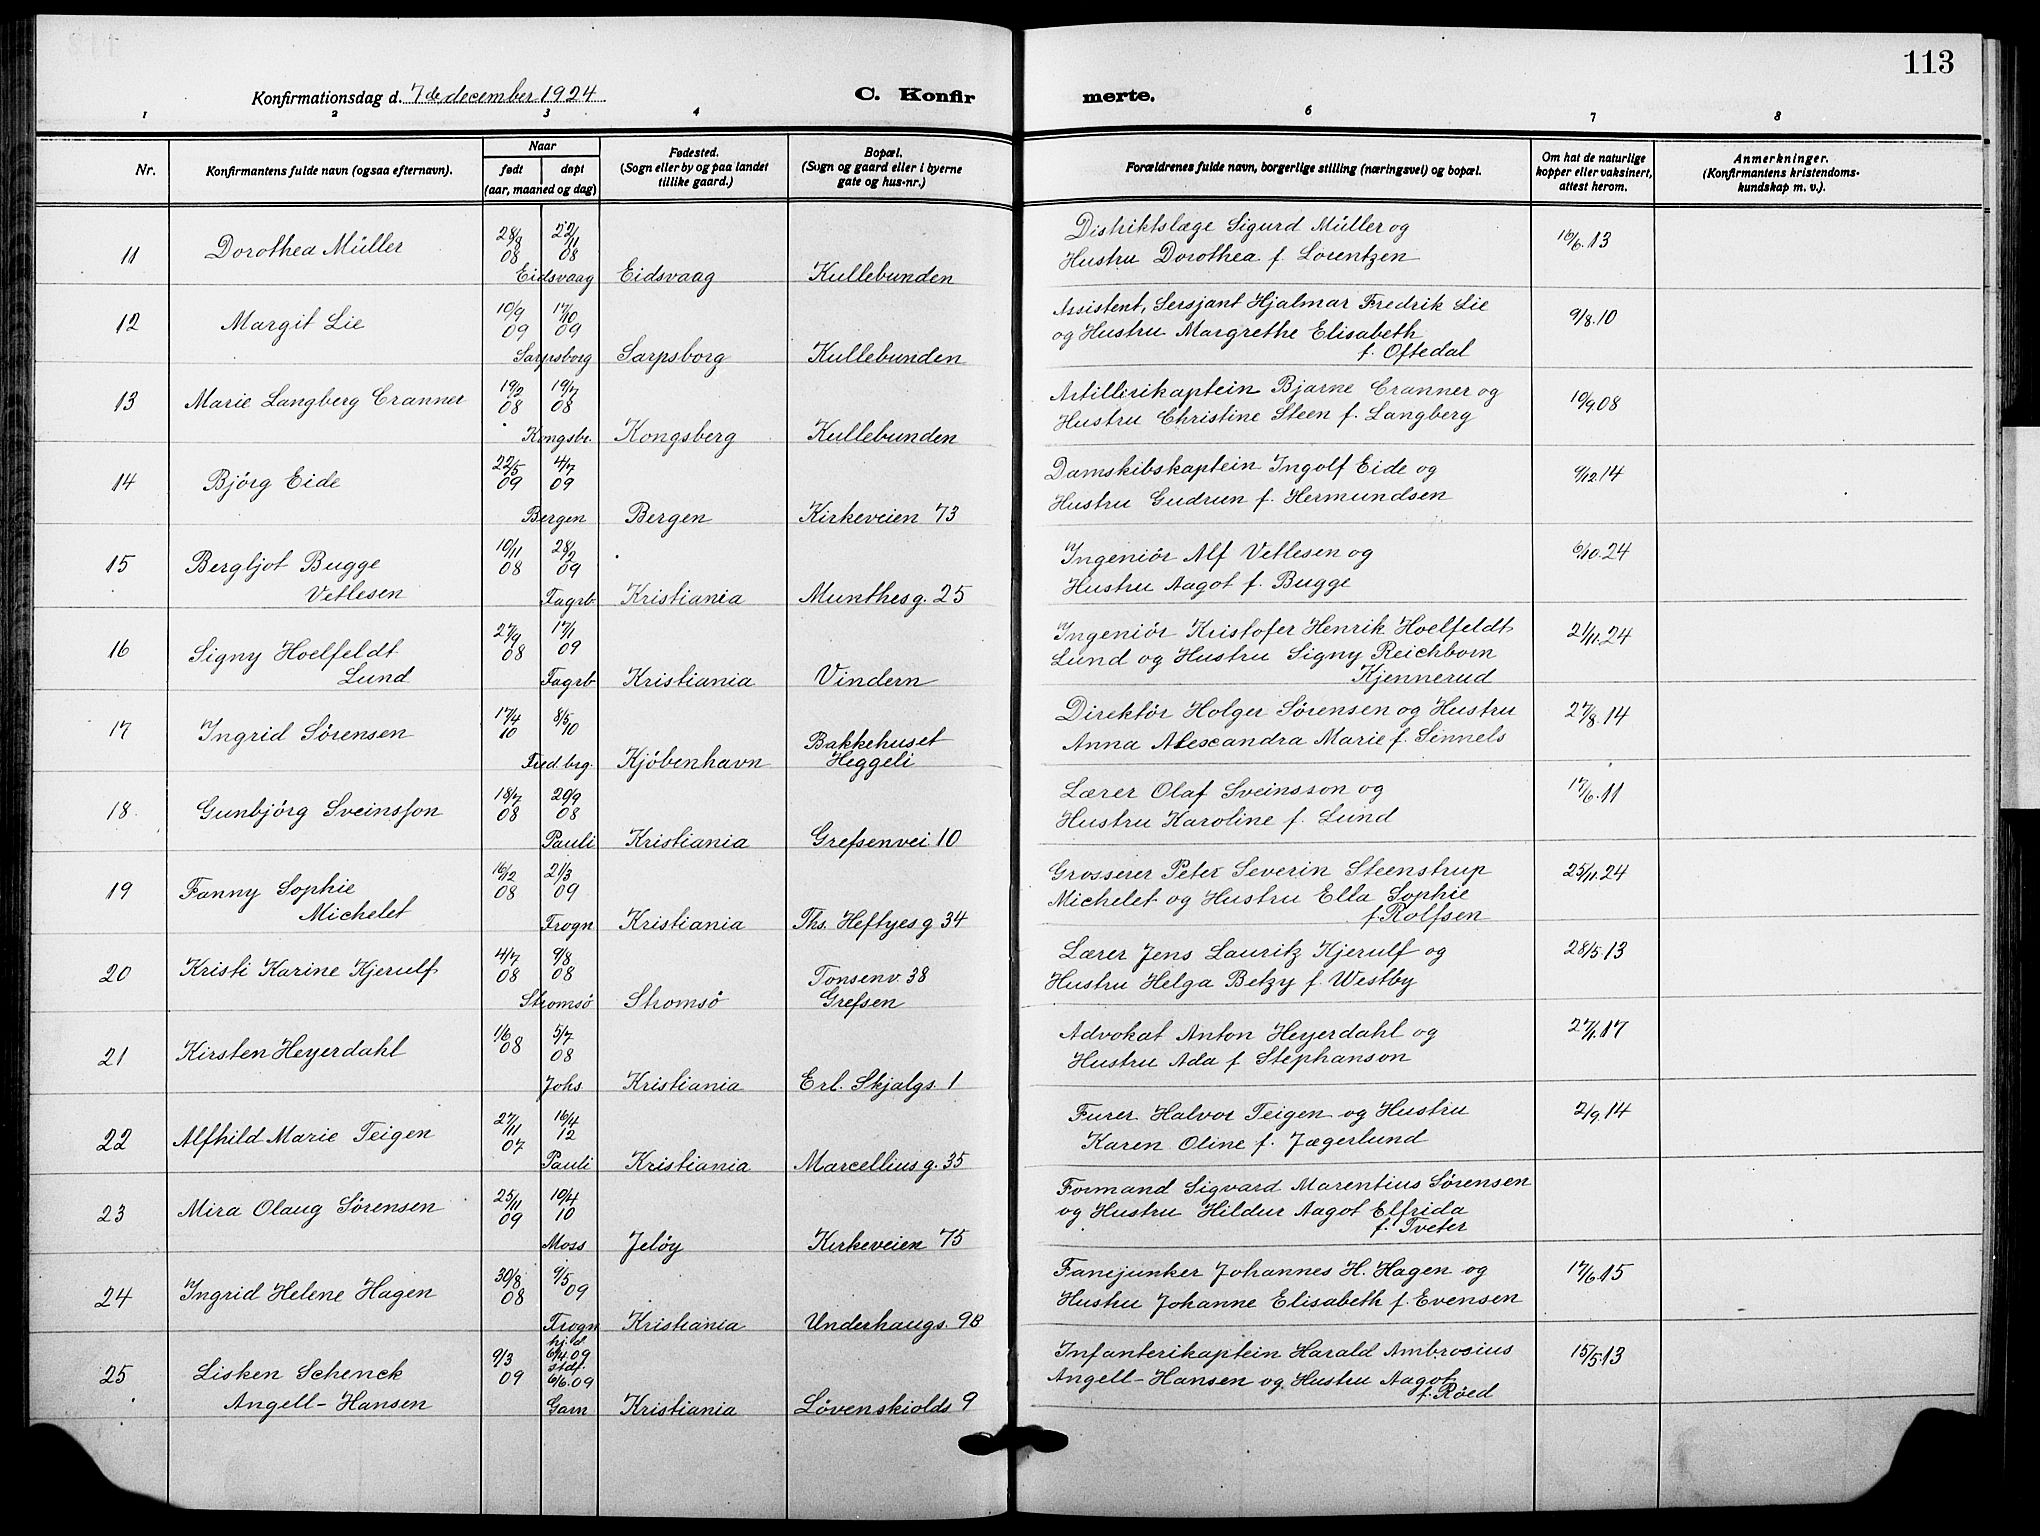 113
Konfirmationsdag d. 7de december 1924
C. Konfir
merte.
1 2 3 4 5 6 7 8
Nr.
Konfirmantens fulde navn (ogsaa efternavn).
Naar
født døpt
(aar, maaned og dag)
Fødested.
(Sogn eller by og paa landet
tillike gaard.)
Bopæl.
(Sogn og gaard eller i byerne
gate og hus-nr.)
Forældrenes fulde navn, borgerlige stilling (næringsvei) og bopæl.
Om hat de naturlige
kopper eller vaksinert,
attest herom.
Anmerkninger.
(Konfirmantens kristendoms-
kundskap m. v.)
11 Dorothea Müller 28/8 08 22/11 08 Distriktslæge Sigurd Müller og 16/6.13
Eidsvaag Eidsvaag Kullebunden Hustru Dorothea f. Lorentzen
12 Margit Lie 10/9 09 17/10 09 Assistent, Sersjant Hjalmar Fredrik Lie 9/8.10
og Hustru Margrethe Elisabeth
Sarpsborg Sarpsborg Kullebunden f. Oftedal
13 Marie Langberg Cranner 19/2 08 19/7 08 Artillirikaptein Bjarne Cranner og 10/9 08
Kongsbr. Kongsberg Kullebunden Hustru Christine Steen f. Langberg
14 Bjørg Eide 22/5 09 4/7 09 Damskibskaptein Ingolf Eide og 9/12.14
Bergen Bergen Kirkeveien 73 Hustru Gudrun f. Hermundsen
15 Bergljot Bugge 10/11 08 28/2 09 Ingeniør Alf Vetlesen og 6/10.24
Vetlesen Fagrb Kristiania Munthesg. 25 Hustru Aagot f. Bugge
16 Signy Hoelfeldt 27/9 08 17/1 09 Ingeniør Kristofer Henrik Hoelfeldt 21/11.24
Lund og Hustru Signy Reichborn
Lund Fagrb Kristiania Vindern Kjennerud
17 Ingrid Sørensen 17/4 10 8/5 10 Bakkehuset Direktør Holger Sørensen og Hustru 27/8.14
Fred.brg. Kjøbenhavn Heggeli Anna Alexandra Marie f. Sinnels
18 Gunbjörg Sveinsson 18/7 08 20/9 08 Lærer Olaf Sveinsson og 17/6.11
Pauli Kristiania Grefsenvei 10 Hustru Karoline f. Lund
19 Fanny Sophie 16/12 08 21/3 09 Grosserer Peter Severin Steenstrup 25/11.24
Michelet Michelet og Hustru Ella Sophie
Frogn Kristiania Ths. Heftyesg 34 f. Rolfsen
20 Kristi Karine Kjerulf 4/7 08 9/8 08 Tonsenv. 38 Lærer Jens Lauritz Kjerulf og 28/5.13
Stromsö Stromsö Grefsen Hustru Helga Betzy f. Westby
21 Kirsten Heyerdahl 1/6 08 5/7 08 Advokat Anton Heyerdahl og 27/1.17
Johs Kristiania Erl. Skjalgs. 1 Hustru Ada f Stephanson
22 Alfhild Marie Teigen 27/11 07 16/4 12 Furer Halvor Teigen og Hustru 2/9.14
Pauli Kristiania Marcelliusg. 35 Karen Oline f. Jægerlund
23 Mira Olaug Sørensen 25/11 09 10/4 10 Formand Sigvard Marentius Sørensen
og Hustru Hildur Aagot Elfrida
Moss Jeløy Kirkeveien 75 f. Tveter
24 Ingrid Helene Hagen 30/8 08 9/5 09 Fanejunker Johannes H. Hagen og 17/6.15
Frogn Kristiania Underhaugs. 9B Hustru Johanne Elisabeth f. Evensen
25 Lisken Schenck 9/3 09 hjd. 6/4.09 stdf. 6/6.09 Infanterikaptein Harald Ambrosius 15/5.13
Angell-Hansen og Hustru Aagot
Angell-Hansen Garn Kristiania Lövenskiolds 9 f. Röed